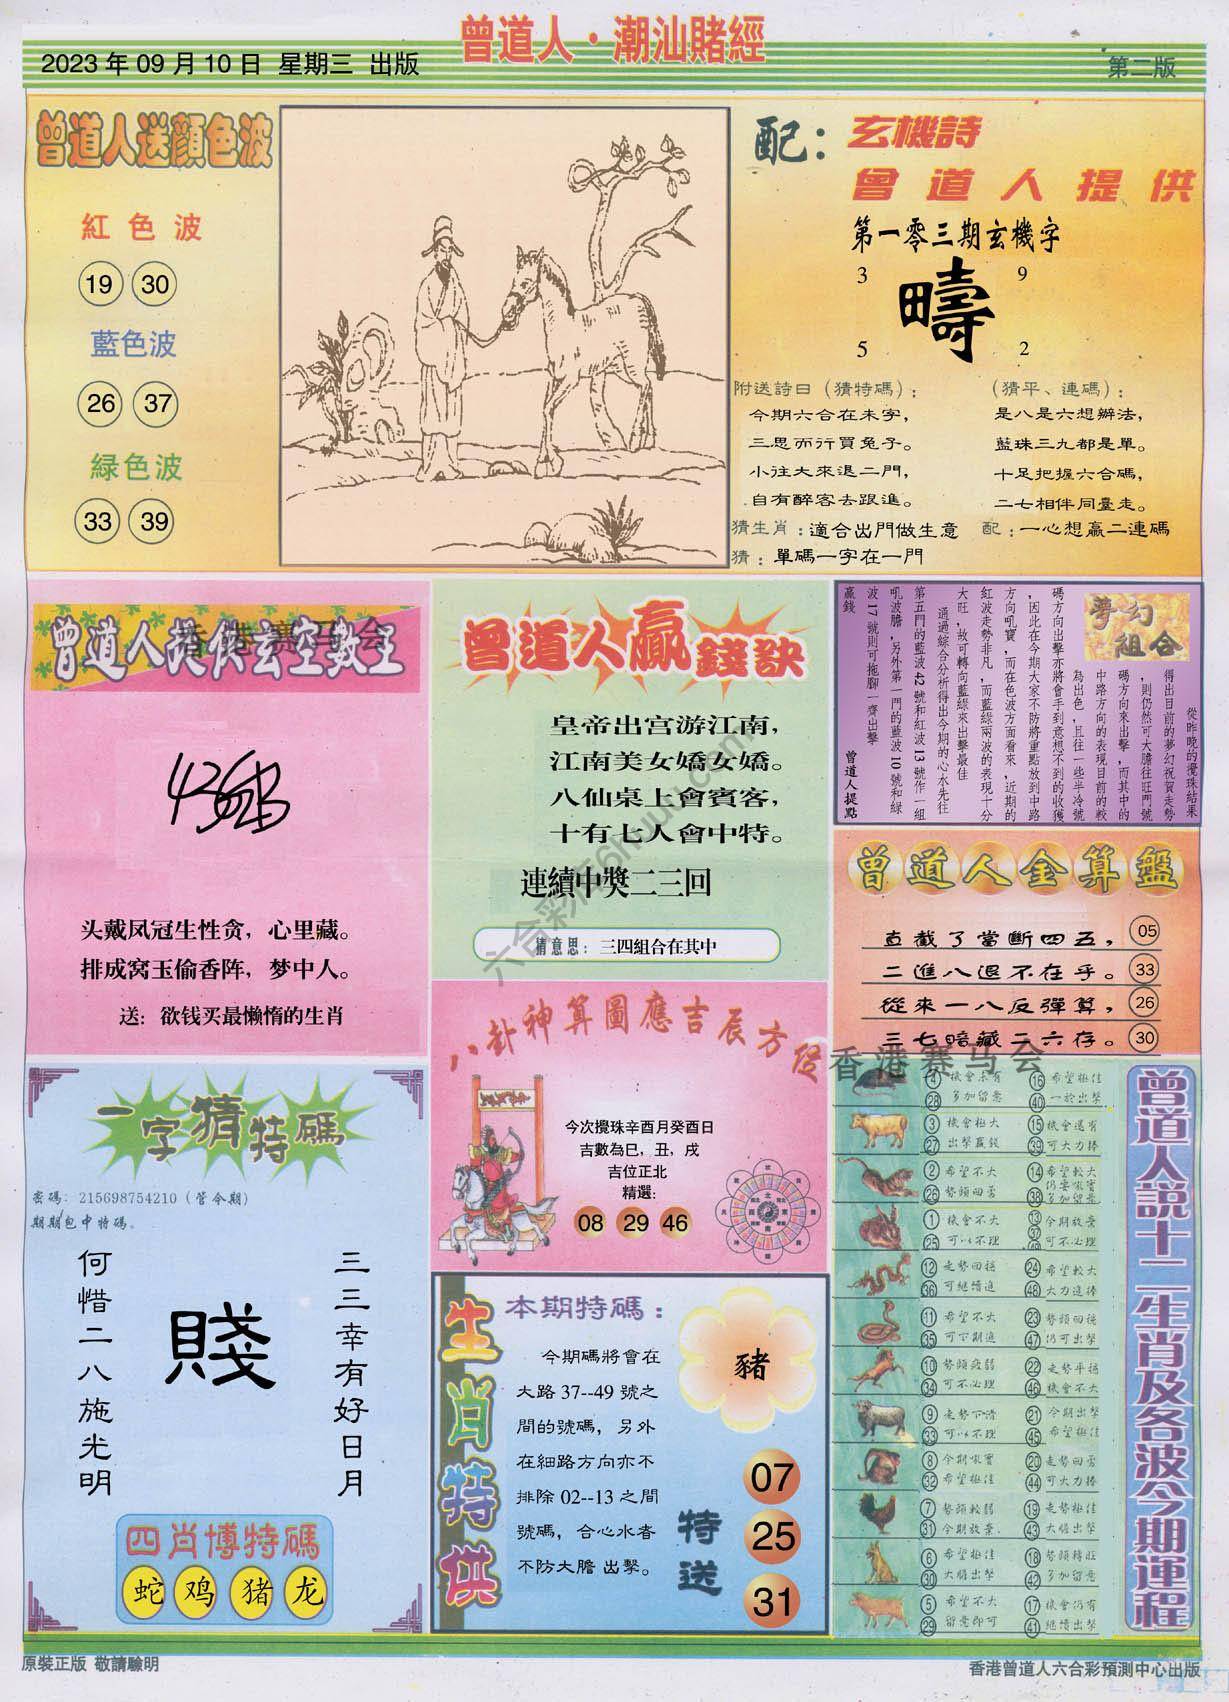 曾道人·潮汕賭經
2023 年 09 月 10 日 星期三 出版
第二版
曾道人送顏色波
紅色波
19 30
藍色波
26 37
緑色波
33 39
配：玄機詩
曾道人提供
第一零三期玄機字
3 9
疇
5 2
附送詩曰（猜特碼）：
今期六合在未字，
三思而行買兔子。
小往大來退二門，
自有醉客去跟進。
猜生肖：適合出門做生意
猜：單碼一字在一門
（猜平、連碼）：
是八是六想辦法，
藍珠三九都是單。
十足把握六合碼，
二七相伴同臺走。
配：一心想贏二連碼
曾道人提供玄空數王
香港赛马会
头戴凤冠生性贪，心里藏。
排成窝玉偷香阵，梦中人。
送：欲钱买最懒惰的生肖
曾道人贏錢訣
皇帝出宫游江南，
江南美女嬌女嬌。
八仙桌上會賓客，
十有七人會中特。
連續中獎二三回
猜意思：三四組合在其中
夢幻組合
從昨晚的攪珠結果
得出目前的夢幻祝賀走勢
，則仍然可大膽往旺門號
碼方向來出擊，而其中的
中路方向的表現目前的較
為出色，且往一些半冷號
碼方向出擊亦將會手到意想不到的收獲
，因此在今期大家不防將重點放到中路
方向吼寶，而在色波方面看來，近期的
紅波走勢非凡，而藍綠兩波的表現十分
大旺，故可轉向藍綠來出擊最佳
通過綜合分析得出今期的心水先往
第五門的藍波 42 號和紅波 13 號作一組
吼波膽，另外第一門的藍波 10 號和綠
波 17 號則可拖腳一齊出擊
贏錢
曾道人提點
曾道人金算盤
直截了當斷四五， 05
二進八退不在乎。 33
從來一八反彈算， 26
三七暗藏二六存。 30
香港赛马会
八卦神算圖應吉辰方位
今次攪珠辛酉月癸酉日
吉數為巳，丑，戌
吉位正北
精選：
08 29 46
一字猜特碼
密碼：215698754210（管令期）
期期包中特碼。
三三幸有好日月
賤
何惜二八施光明
四肖博特碼
蛇 鸡 猪 龙
生肖特供
本期特碼：
今期碼將會在
大路 37--49 號之
間的號碼，另外
在細路方向亦不
排除 02--13 之間
號碼，合心水者
不防大膽 出擊。
豬
特送
07
25
31
曾道人説十二生肖及各波今期運程
4 機會未有 16 希望極佳
28 多加留意 40 一於出擊
3 機會極大 15 機會還有
27 出擊贏錢 39 可大力捧
2 希望不大 14 希望較大
26 勢頭回勇 38 多加留意
1 機會不大 13 今期放棄
25 可以不理 可不必理
12 走勢回穩 24 希望較大
36 可繼續進 48 大力進捧
11 希望不大 23 勢頭回穩
35 可下期進 47 仍可出擊
10 勢頭疲弱 22 走勢平穩
34 可不必理 46 機會不大
9 走勢下滑 21 今期出擊
33 可以不理 45 希望極佳
8 今期吼寶 20 走勢回勇
32 希望極佳 44 可大力捧
7 勢頭較弱 19 走勢極佳
31 今期放棄 43 大膽出擊
6 希望極佳 18 勢頭轉旺
30 大膽出擊 42 多加留意
5 希望不大 17 機會仍有
29 留意即可 41 繼續出擊
六合彩库6huuu.com
原裝正版 敬請驗明
香港曾道人六合彩預測中心出版